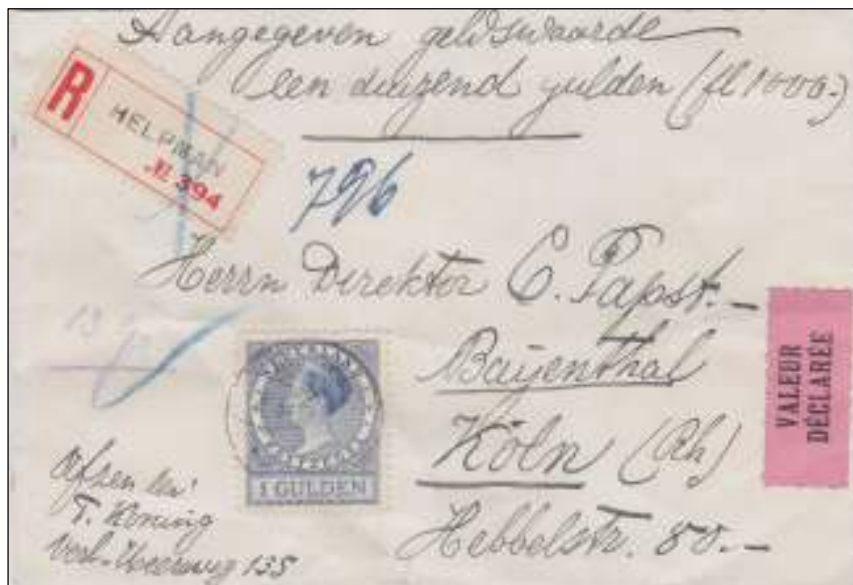 Aangegeven geldswaarde
een duizend gulden (fl 1000.-)
R
HELPMAN
№ 394
796
Herrn Direktor C. Papst.-
Bayenthal
Köln (Rh)
Hebbelstr. 80.-
VALEUR
DÉCLARÉE
NEDERLAND
1 GULDEN
T. Koning
135